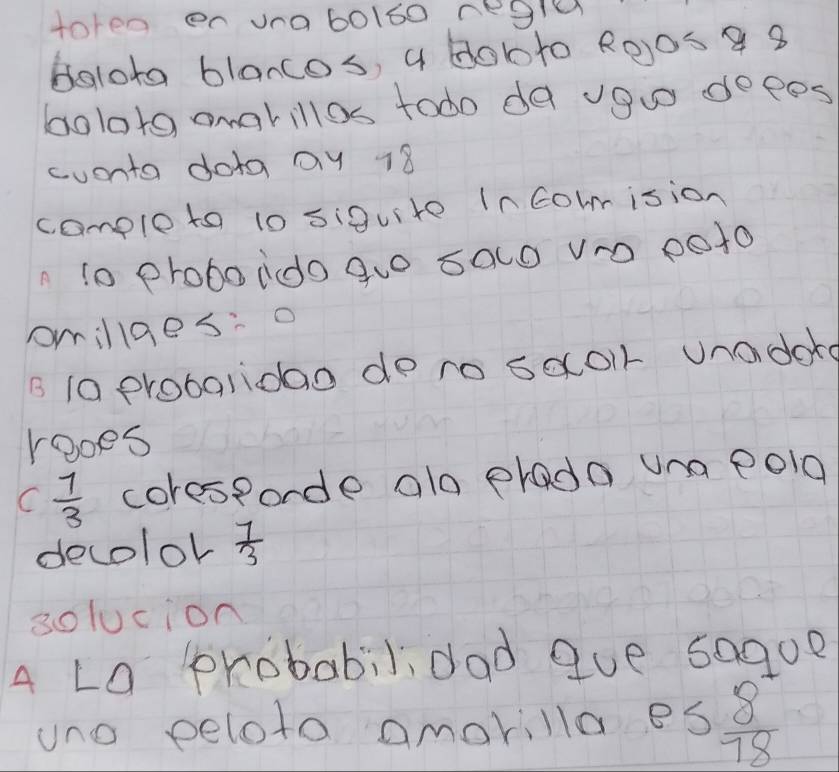 torea en una bolso negra
balota blancos, 4 boloto Rojos y 8
balota amarillas todo da ugua depes
cuenta dota ay 18
completa lo siguite incomision
A lo probaiido que saco una peto
amillaes: o
B la probalidad de no sacar unadota
rooes
C 1/3 coresponde ala prada una pola
decolor 1/3
solucion
A La probabilidad que saque
una pelota amarilla es 8/18